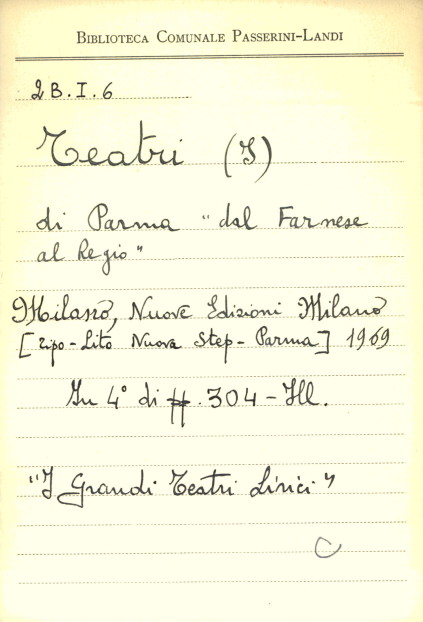 BIBLIOTECA COMUNALE PASSERINI-LANDI
2B.I.6
Teatri (I)
di Parma "dal Farnese
al Regio"
Milano, Nuove Edizioni Milano
[Tipo-Lito Nuova Step-Parma] 1969
In 4° di pp. 304 - Ill.
"I Grandi Teatri Lirici"
C